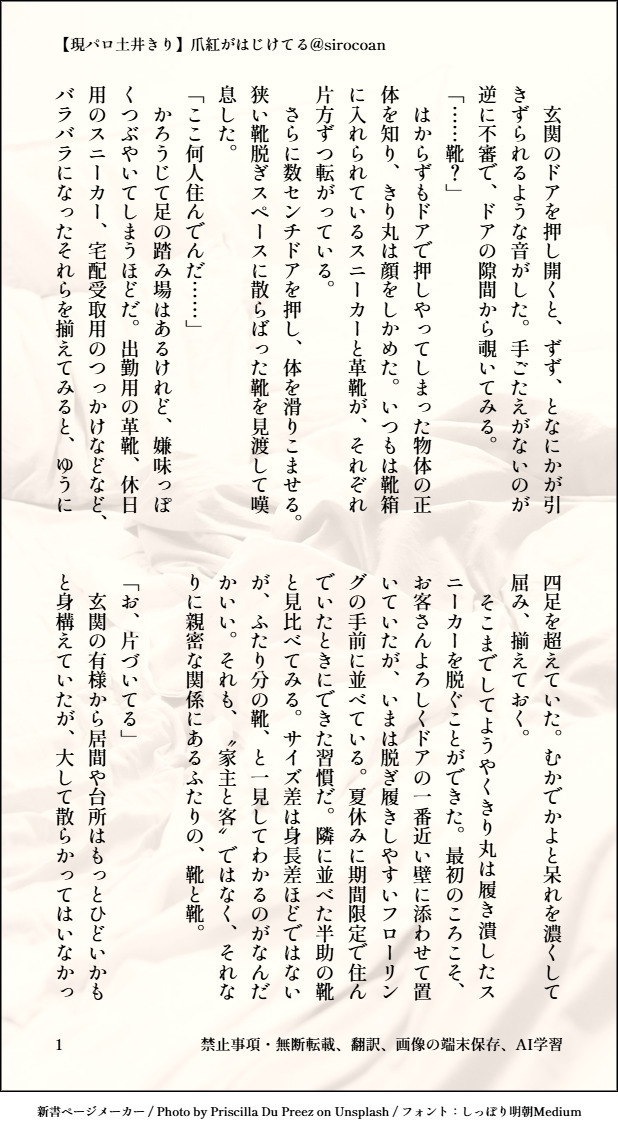 【現パロ土井きり】爪紅がはじけてる@sirocoan
玄関のドアを押し開くと、ずず、となにかが引
きずられるような音がした。手ごたえがないのが
逆に不審で、ドアの隙間から覗いてみる。
「……靴？」
はからずもドアで押しやってしまった物体の正
体を知り、きり丸は顔をしかめた。いつもは靴箱
に入れられているスニーカーと革靴が、それぞれ
片方ずつ転がっている。
さらに数センチドアを押し、体を滑りこませる。
狭い靴脱ぎスペースに散らばった靴を見渡して嘆
息した。
「ここ何人住んでんだ……」
かろうじて足の踏み場はあるけれど、嫌味っぽ
くつぶやいてしまうほどだ。出勤用の革靴、休日
用のスニーカー、宅配受取用のつっかけなどなど、
バラバラになったそれらを揃えてみると、ゆうに
四足を超えていた。むかでかよと呆れを濃くして
屈み、揃えておく。
そこまでしてようやくきり丸は履き潰したス
ニーカーを脱ぐことができた。最初のころこそ、
お客さんよろしくドアの一番近い壁に添わせて置
いていたが、いまは脱ぎ履きしやすいフローリン
グの手前に並べている。夏休みに期間限定で住ん
でいたときにできた習慣だ。隣に並べた半助の靴
と見比べてみる。サイズ差は身長差ほどではない
が、ふたり分の靴、と一見してわかるのがなんだ
かいい。それも、〝家主と客〟ではなく、それな
りに親密な関係にあるふたりの、靴と靴。
「お、片づいてる」
玄関の有様から居間や台所はもっとひどいかも
と身構えていたが、大して散らかってはいなかっ
1
禁止事項・無断転載、翻訳、画像の端末保存、AI学習
新書ページメーカー / Photo by Priscilla Du Preez on Unsplash / フォント：しっぽり明朝Medium